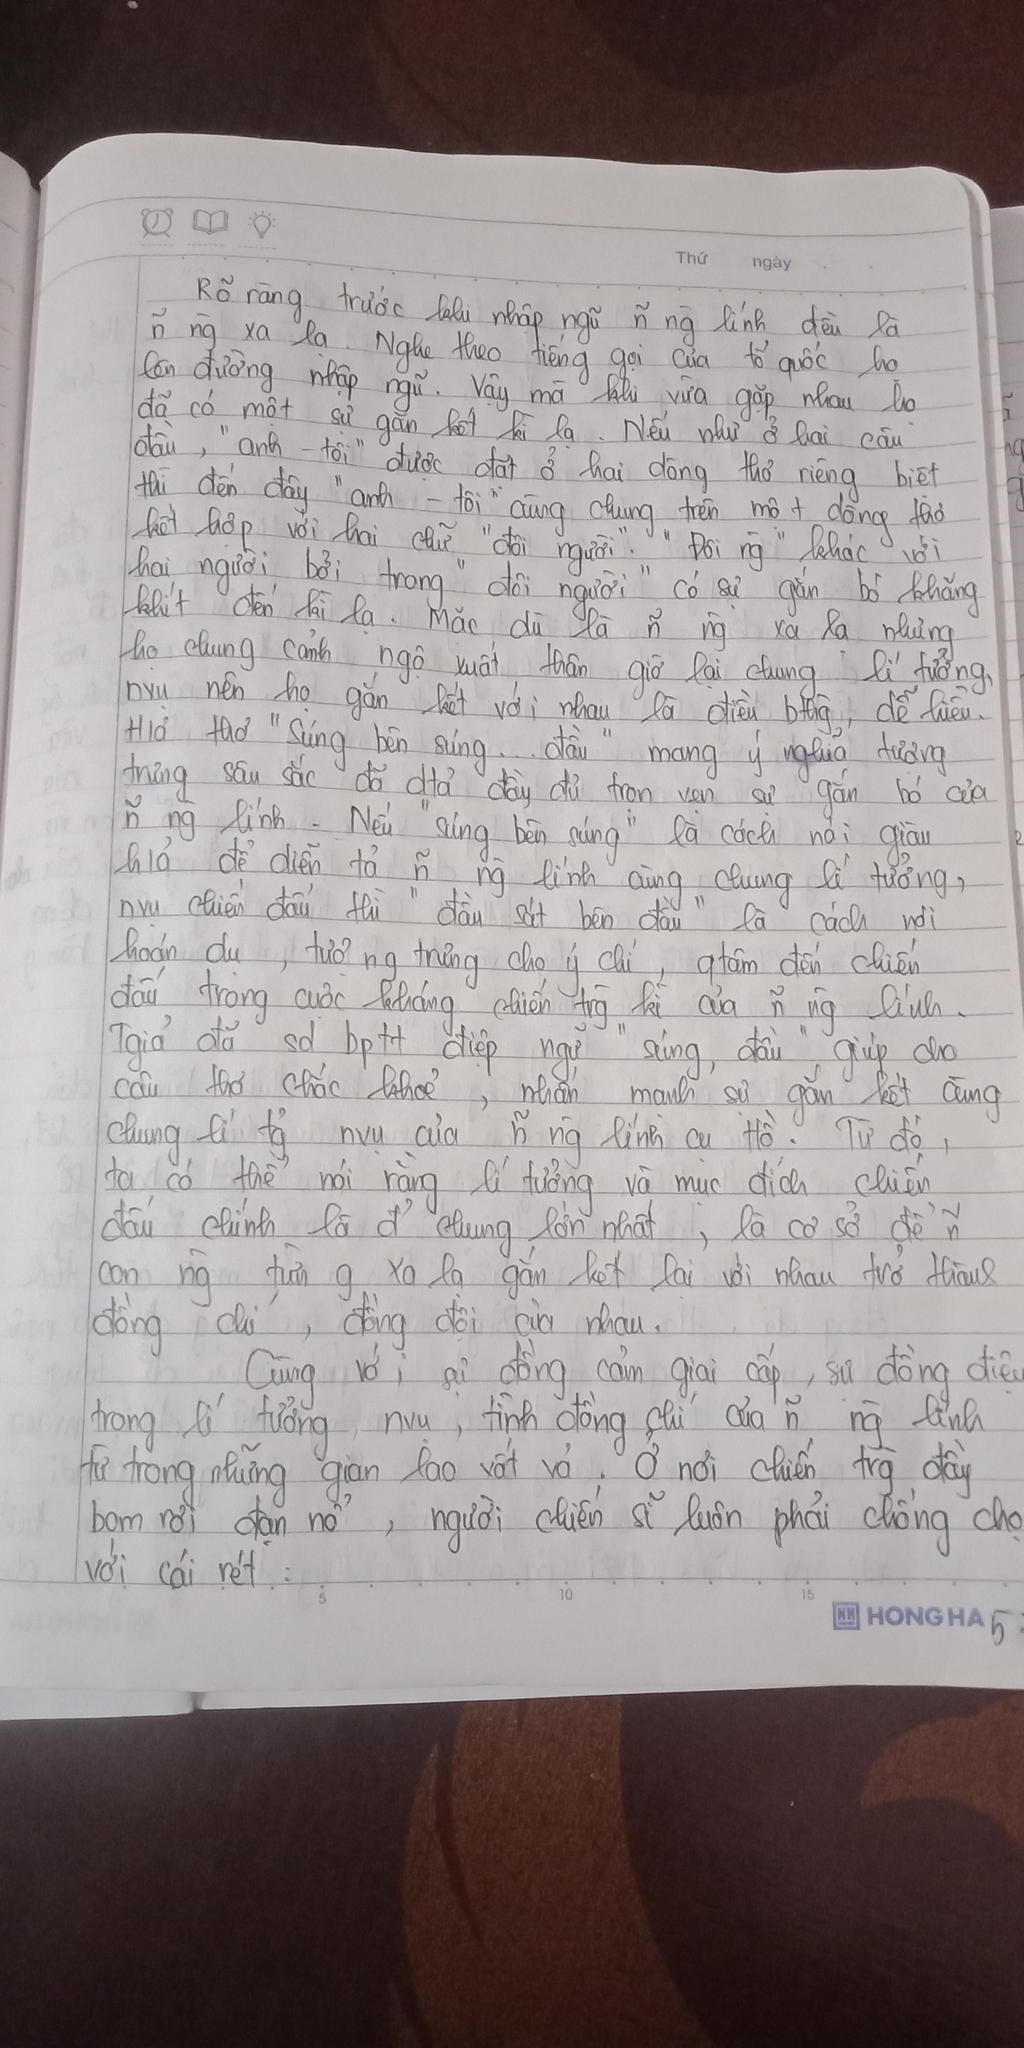 Thứ ngày
Rõ ràng trước khi nhập ngũ ñ ng̃ lính đều là
ñ ng̃ xa lạ. Nghe theo tiếng gọi của tổ quốc họ
lên đường nhập ngũ. Vậy mà khi vừa gặp nhau họ
đã có một sự gắn kết kì lạ. Nếu như ở hai câu
đầu, "anh - tôi" được đặt ở hai dòng thơ riêng biệt
thì đến đây "anh - tôi" cùng chung trên một dòng thơ
kết hợp với hai chữ "đôi người". "Đôi ng̃" khác với
hai người bởi trong "đôi người" có sự gắn bó khăng
khít đến kì lạ. Mặc dù là ñ ng̃ xa lạ nhưng
họ chung cảnh ngộ xuất thân giờ lại chung lí tưởng,
nvụ nên họ gắn kết với nhau là điều bthg̀, dễ hiểu.
H/ả thơ "Súng bên súng... đầu" mang ý nghĩa tượng
trưng sâu sắc đã dtả đầy đủ trọn vẹn sự gắn bó của
ñ ng̃ lính - Nếu "súng bên súng" là cách nói giàu
h/ả để diễn tả ñ ng̃ lính cùng chung lí tưởng,
nvụ chiến đấu thì "đầu sát bên đầu" là cách nói
hoán dụ, tượng trưng cho ý chí, qtâm đến chiến
đấu trong cuộc kháng chiến trg̀ kì của ñ ng̃ lính.
Tgiả đã sd bptt điệp ngữ "súng, đầu" giúp cho
câu thơ chắc khoẻ, nhấn mạnh sự gắn kết cùng
chung lí tg̉ nvụ của ñ ng̃ lính cụ Hồ. Từ đó,
ta có thể nói rằng lí tưởng và mục đích chiến
đấu chính là đ' chung lớn nhất, là cơ sở để ñ
con ng̃ từng xa lạ gắn kết lại với nhau trở thành
đồng chí, đồng đội của nhau.
Cùng với sự đồng cảm giai cấp, sự đồng điệu
trong lí tưởng, nvụ, tình đồng chí của ñ ng̃ lính
từ trong những gian lao vất vả. Ở nơi chiến trg̀ đầy
bom rơi đạn nổ, người chiến sĩ luôn phải chống chọ
với cái rét:
5 10 15
HONG HA
5